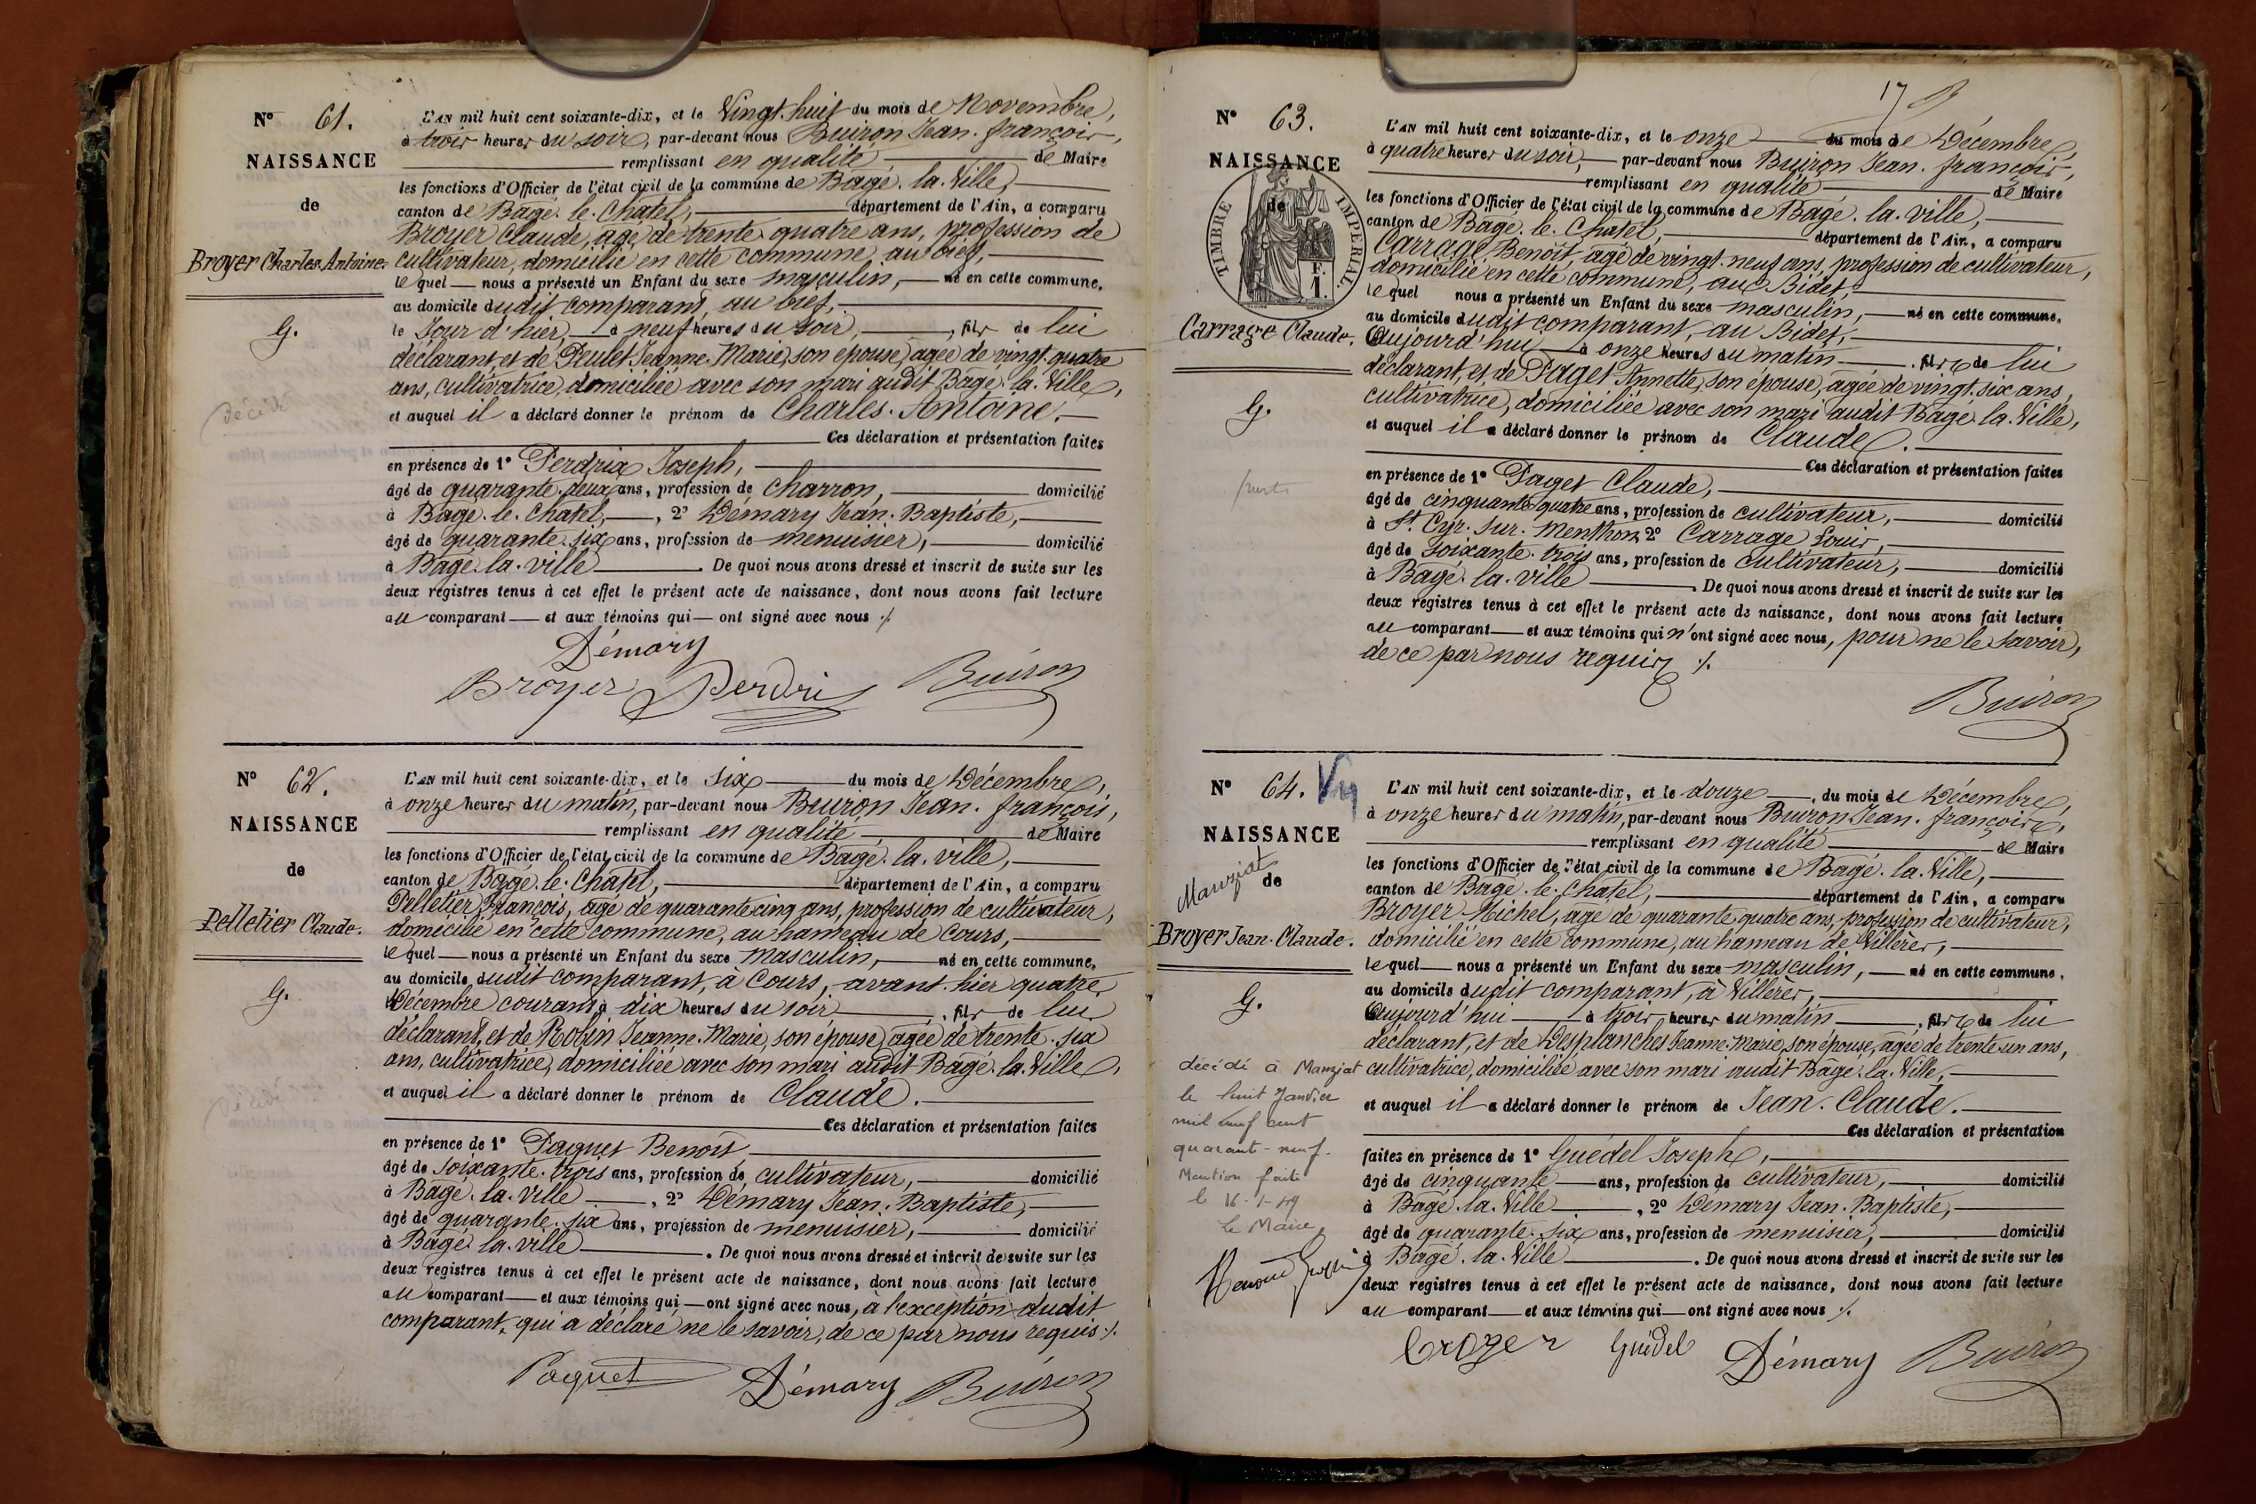 Nº 61.
NAISSANCE
de
Broyer Charles Antoine.
G.
décédé
L'AN mil huit cent soixante-dix, et le Vingt huit du mois de Novembre,
à trois heures du soir, par-devant nous Buiron Jean. françois,
remplissant en qualité de Maire
les fonctions d'Officier de l'état civil de la commune de Bagé. la. Ville,
canton de Bagé. le. Chatel, département de l'Ain, a comparu
Broyer Claude, agé de trente quatre ans, profession de
cultivateur, domicilié en cette commune, au bief,
lequel nous a présenté un Enfant du sexe masculin, né en cette commune,
au domicile dudit comparant, au bief,
le Jour d'hier, à neuf heures du soir, fils de lui
déclarant, et de Peulet Jeanne. Marie, son épouse, agée de vingt. quatre
ans, cultivatrice, domiciliée avec son mari audit Bagé. la. Ville,
et auquel il a déclaré donner le prénom de Charles. Antoine.
Ces déclaration et présentation faites
en présence de 1º Perdrix Joseph,
âgé de quarante. deux ans, profession de charron, domicilié
à Bagé. le. Chatel, , 2º Démary Jean. Baptiste,
âgé de quarante. six ans, profession de menuisier, domicilié
à Bagé. la. ville . De quoi nous avons dressé et inscrit de suite sur les
deux registres tenus à cet effet le présent acte de naissance, dont nous avons fait lecture
au comparant et aux témoins qui ont signé avec nous ./.
Démary
Broyer Perdrix Buiron
Nº 62.
NAISSANCE
de
Pelletier Claude.
G.
décédé
L'AN mil huit cent soixante-dix, et le six du mois de Décembre,
à onze heures du matin, par-devant nous Buiron Jean. françois,
remplissant en qualité de Maire
les fonctions d'Officier de l'état civil de la commune de Bagé. la. ville,
canton de Bagé. le. Chatel, département de l'Ain, a comparu
Pelletier François, agé de quarante cinq ans, profession de cultivateur,
domicilié en cette commune, au hameau de Cours,
lequel nous a présenté un Enfant du sexe Masculin, né en cette commune,
au domicile dudit comparant, à Cours, avant. hier quatre
Décembre courant, à dix heures du soir , fils de lui
déclarant, et de Robin Jeanne. Marie, son épouse, agée de trente. six
ans, cultivatrice, domiciliée avec son mari audit Bagé. la. Ville,
et auquel il a déclaré donner le prénom de Claude.
Ces déclaration et présentation faites
en présence de 1º Paquet Benoit,
âgé de soixante. trois ans, profession de cultivateur, domicilié
à Bagé. la. ville , 2º Démary Jean. Baptiste,
âgé de quarante. six ans, profession de menuisier, domicilié
à Bagé. la. ville . De quoi nous avons dressé et inscrit de suite sur les
deux registres tenus à cet effet le présent acte de naissance, dont nous avons fait lecture
au comparant et aux témoins qui ont signé avec nous, à l'exception dudit
comparant, qui a déclaré ne le savoir, de ce par nous requis ./.
Paquet Démary Buiron
17
Nº 63.
NAISSANCE
de
TIMBRE IMPERIAL
F.
1.
Carrage Claude.
G.
L'AN mil huit cent soixante-dix, et le onze du mois de Décembre,
à quatre heures du soir, par-devant nous Buiron Jean. françois,
remplissant en qualité de Maire
les fonctions d'Officier de l'état civil de la commune de Bagé. la. ville,
canton de Bagé. le. Chatel, département de l'Ain, a comparu
Carrage Benoît, agé de vingt. neuf ans, profession de cultivateur,
domicilié en cette commune, au Bidet,
lequel nous a présenté un Enfant du sexe masculin, né en cette commune,
au domicile dudit comparant, au Bidet,
Aujourd'hui à onze heures du matin , fils de lui
déclarant, et de Paget Annette, son épouse, agée de vingt. six ans,
cultivatrice, domiciliée avec son mari audit Bagé. la. Ville,
et auquel il a déclaré donner le prénom de Claude.
Ces déclaration et présentation faites
en présence de 1º Paget Claude,
âgé de cinquante quatre ans, profession de cultivateur, domicilié
à St. Cyr. sur. Menthon, 2º Carrage Louis,
âgé de soixante. trois ans, profession de cultivateur, domicilié
à Bagé. la. ville . De quoi nous avons dressé et inscrit de suite sur les
deux registres tenus à cet effet le présent acte de naissance, dont nous avons fait lecture
au comparant et aux témoins qui n'ont signé avec nous, pour ne le savoir,
de ce par nous requis ./.
Buiron
Nº 64.
NAISSANCE
Manziat
de
Broyer Jean. Claude.
G.
décédé à Manziat
le huit Janvier
mil neuf cent
quarante-neuf.
Mention faite
le 16-1-49
Le Maire
L'AN mil huit cent soixante-dix, et le douze , du mois de Décembre,
à onze heures du matin, par-devant nous Buiron Jean. françois,
remplissant en qualité de Maire
les fonctions d'Officier de l'état civil de la commune de Bagé. la. Ville,
canton de Bagé. le. Chatel, département de l'Ain, a comparu
Broyer Michel, agé de quarante quatre ans, profession de cultivateur,
domicilié en cette commune, au hameau de Villerer,
lequel nous a présenté un Enfant du sexe masculin, né en cette commune,
au domicile dudit comparant, à Villerer,
Aujourd'hui à trois heures du matin , fils de lui
déclarant, et de Desplanches Jeanne. Marie, son épouse, agée de trente un ans,
cultivatrice, domiciliée avec son mari audit Bagé. la. Ville,
et auquel il a déclaré donner le prénom de Jean. Claude.
Ces déclaration et présentation
faites en présence de 1º Guédel Joseph,
âgé de cinquante ans, profession de cultivateur, domicilié
à Bagé. la. Ville , 2º Démary Jean. Baptiste,
âgé de quarante. six ans, profession de menuisier, domicilié
à Bagé. la. Ville . De quoi nous avons dressé et inscrit de suite sur les
deux registres tenus à cet effet le présent acte de naissance, dont nous avons fait lecture
au comparant et aux témoins qui ont signé avec nous ./.
broyer Guédel Démary Buiron